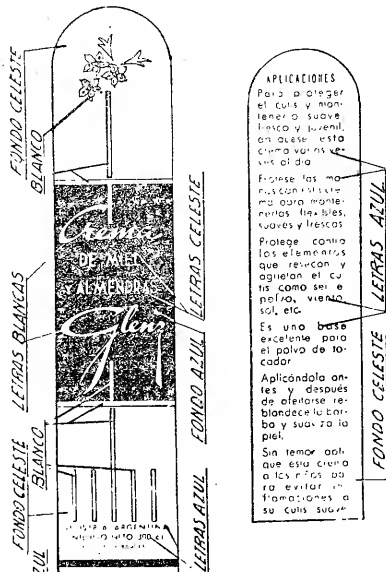 FONDO CELESTE
BLANCO
LETRAS BLANCAS
FONDO CELESTE
BLANCO
Crema
DE MIEL
Y ALMENDRAS
Glenz
INDUSTRIA ARGENTINA
LETRAS CELESTE
FONDO AZUL
LETRAS AZUL
APLICACIONES
Para proteger
el cutis y man-
tenerlo suave,
fresco y juvenil,
esta
crema varias ve-
ces al día
Frótese las ma-
nos con esta cre-
ma para mante-
nerlas flexibles,
suaves y frescas
Protege contra
los elementos
que resecan y
agrietan el cu-
tis como ser el
polvo, viento,
sol, etc.
Es una base
excelente para
el polvo de to-
cador
Aplicándola an-
tes y después
de afeitarse re-
blandece la bar-
ba y suaviza la
piel.
Sin temor apli-
que esta crema
a los niños pa-
ra evitar in-
flamaciones a
su cutis suave
LETRAS AZUL
FONDO CELESTE